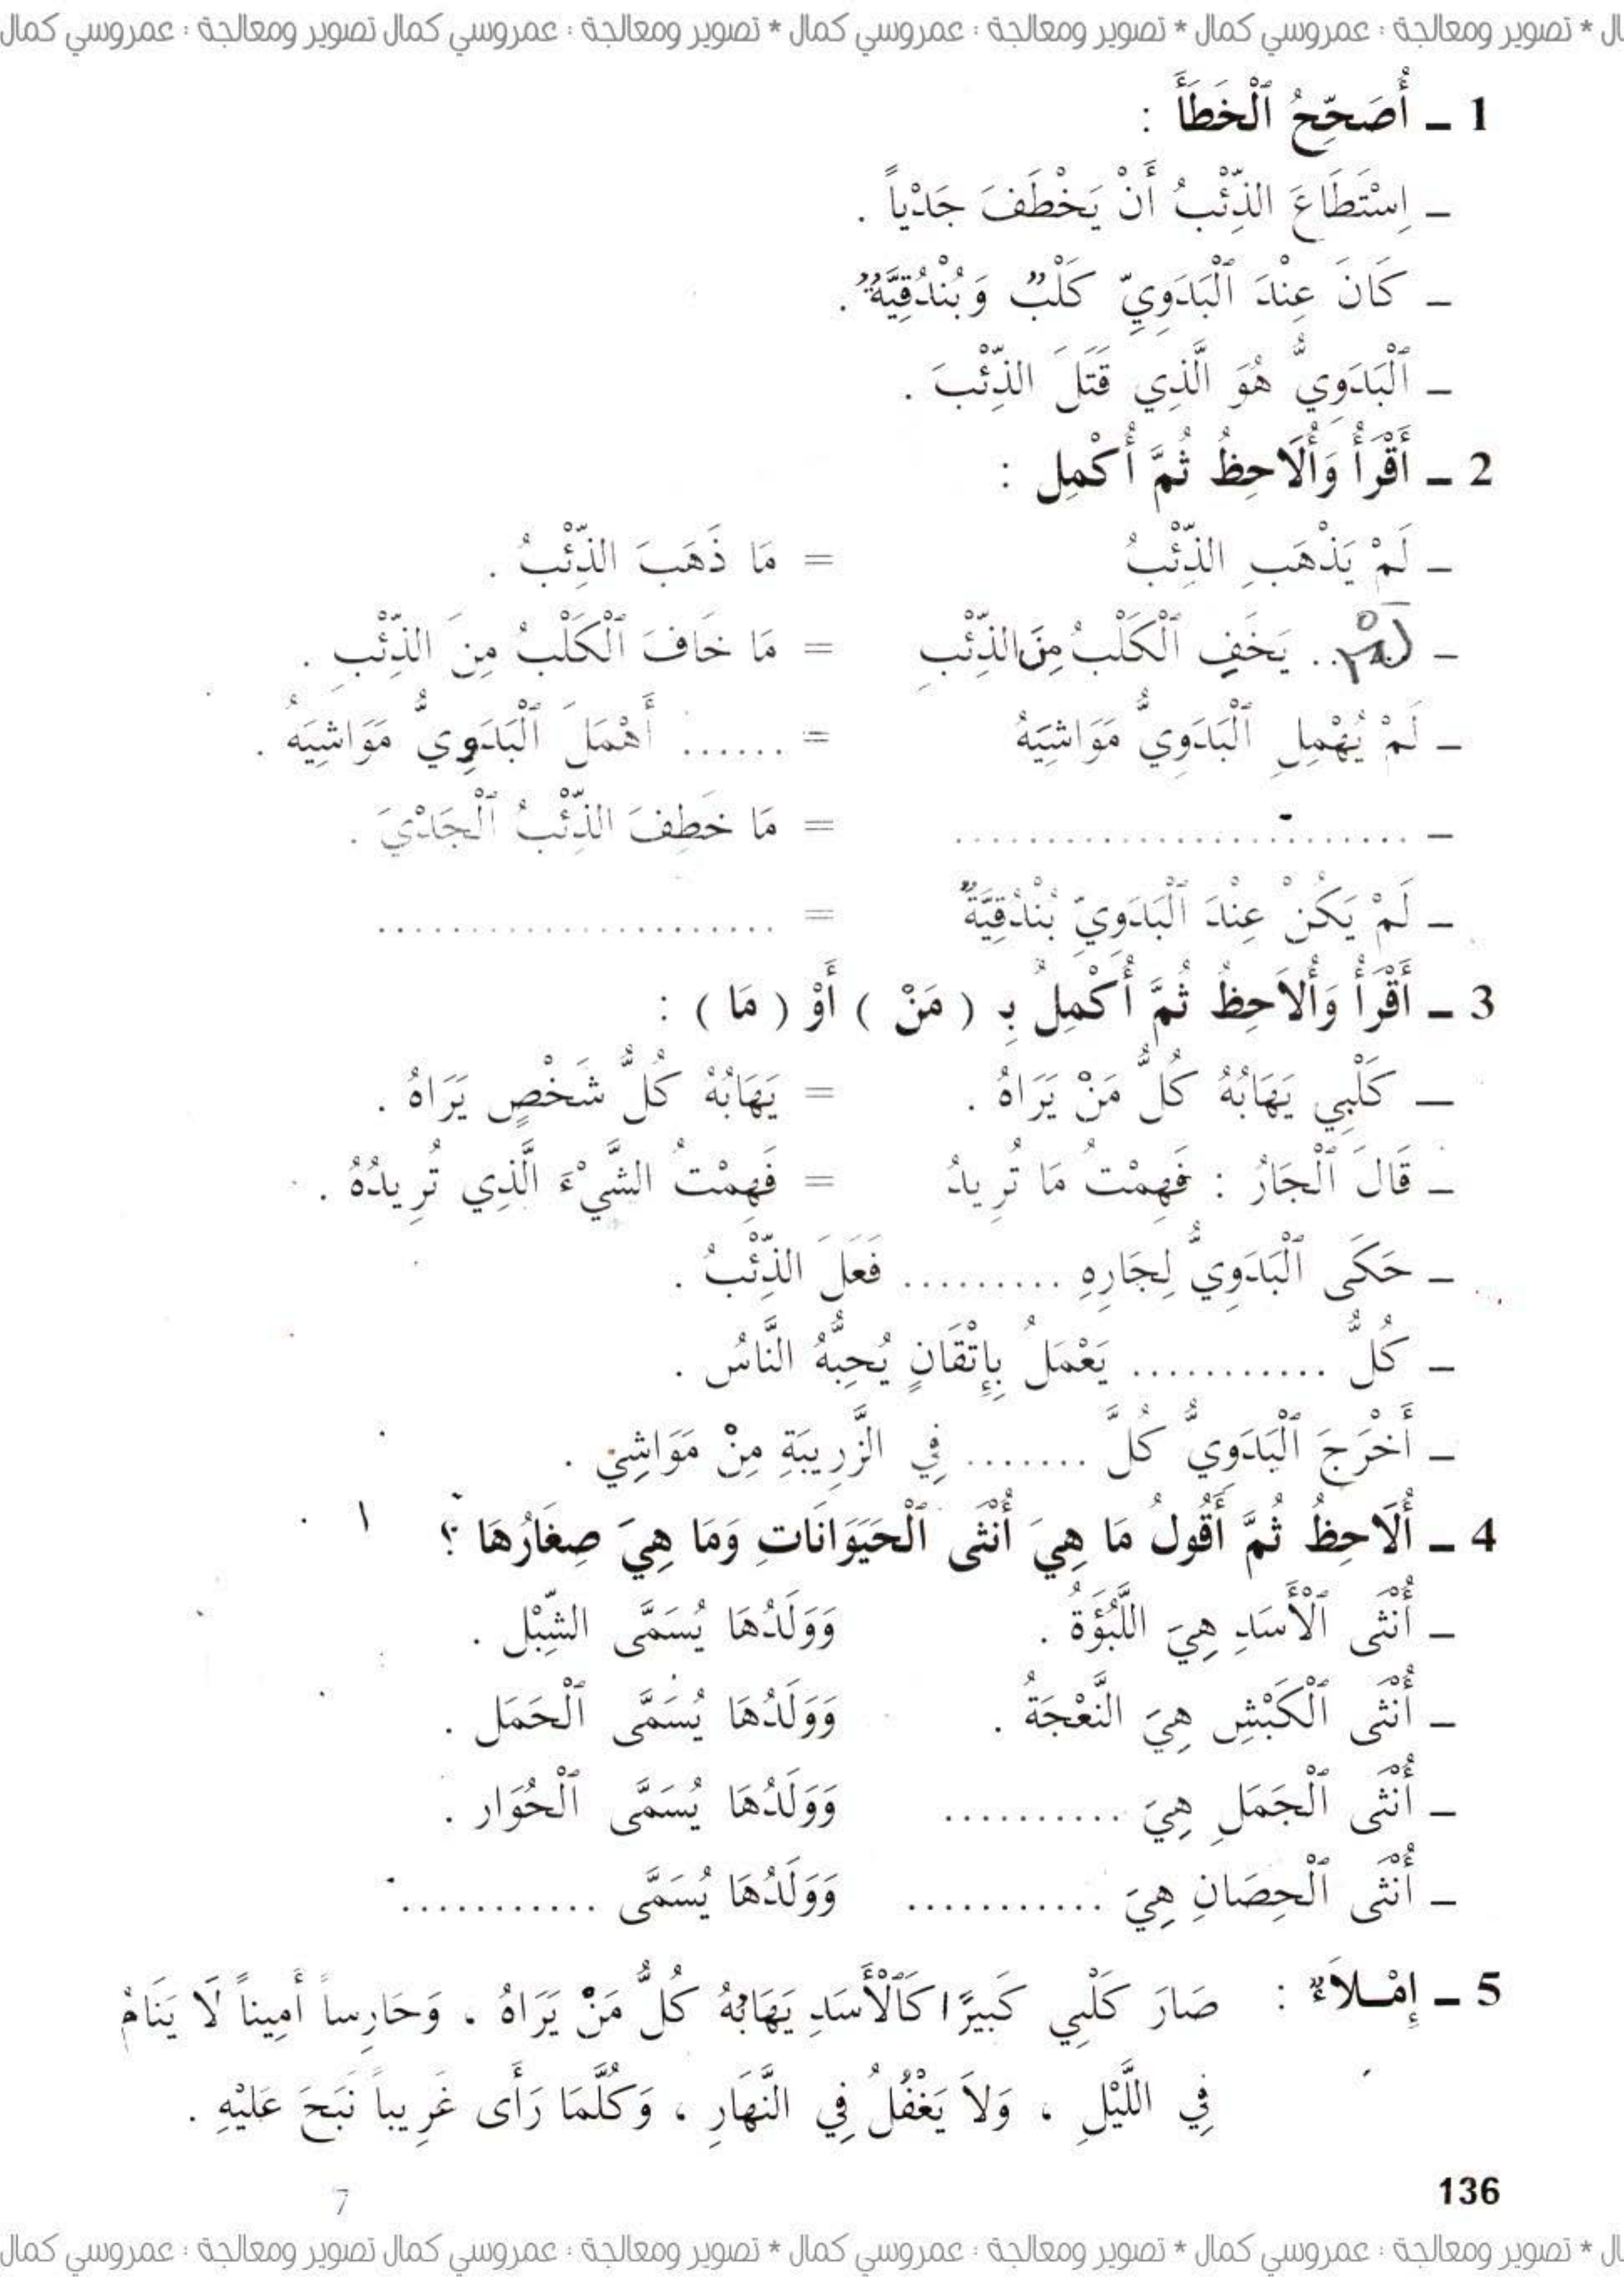 ال * تصوير ومعالجة : عمروسي كمال * تصوير ومعالجة : عمروسي كمال * تصوير ومعالجة : عمروسي كمال تصوير ومعالجة : عمروسي كمال
1 ـ أُصَحِّحُ ٱلْخَطَأَ :
ـ اِسْتَطَاعَ الذِّئْبُ أَنْ يَخْطَفَ جَدْياً .
ـ كَانَ عِنْدَ ٱلْبَدَوِيِّ كَلْبٌ وَبُنْدُقِيَّةٌ .
ـ ٱلْبَدَوِيُّ هُوَ الَّذِي قَتَلَ الذِّئْبَ .
2 ـ أَقْرَأُ وَأُلَاحِظُ ثُمَّ أُكْمِل :
ـ لَمْ يَذْهَبِ الذِّئْبُ = مَا ذَهَبَ الذِّئْبُ .
ـ لَمْ .. يَخَفِ ٱلْكَلْبُ مِنَ الذِّئْبِ = مَا خَافَ ٱلْكَلْبُ مِنَ الذِّئْبِ .
ـ لَمْ يُهْمِلِ ٱلْبَدَوِيُّ مَوَاشِيَهُ = ...... أَهْمَلَ ٱلْبَدَوِيُّ مَوَاشِيَهُ .
ـ ......................... = مَا خَطِفَ الذِّئْبُ ٱلْجَدْيَ .
ـ لَمْ يَكُنْ عِنْدَ ٱلْبَدَوِيِّ بُنْدُقِيَّةٌ = ......................
3 ـ أَقْرَأُ وَأُلاَحِظُ ثُمَّ أُكْمِلُ بِـ ( مَنْ ) أَوْ ( مَا ) :
ـ كَلْبِي يَهَابُهُ كُلُّ مَنْ يَرَاهُ . = يَهَابُهُ كُلُّ شَخْصٍ يَرَاهُ .
ـ قَالَ ٱلْجَارُ : فَهِمْتُ مَا تُرِيدُ = فَهِمْتُ الشَّيْءَ الَّذِي تُرِيدُهُ .
ـ حَكَى ٱلْبَدَوِيُّ لِجَارِهِ ......... فَعَلَ الذِّئْبُ .
ـ كُلُّ ........... يَعْمَلُ بِإِتْقَانٍ يُحِبُّهُ النَّاسُ .
ـ أَخْرَجَ ٱلْبَدَوِيُّ كُلَّ ....... فِي الزَّرِيبَةِ مِنْ مَوَاشِيَ .
4 ـ أُلَاحِظُ ثُمَّ أَقُولُ مَا هِيَ أُنْثَى ٱلْحَيَوَانَاتِ وَمَا هِيَ صِغَارُهَا ؟
ـ أُنْثَى ٱلْأَسَدِ هِيَ اللَّبُؤَةُ . وَوَلَدُهَا يُسَمَّى الشِّبْل .
ـ أُنْثَى ٱلْكَبْشِ هِيَ النَّعْجَةُ . وَوَلَدُهَا يُسَمَّى ٱلْحَمَل .
ـ أُنْثَى ٱلْجَمَلِ هِيَ .......... وَوَلَدُهَا يُسَمَّى ٱلْحُوَار .
ـ أُنْثَى ٱلْحِصَانِ هِيَ ........... وَوَلَدُهَا يُسَمَّى ...........
5 ـ إِمْـلاَءٌ : صَارَ كَلْبِي كَبِيرًا كَٱلْأَسَدِ يَهَابُهُ كُلُّ مَنْ يَرَاهُ ، وَحَارِساً أَمِيناً لَا يَنَامُ
فِي اللَّيْلِ ، وَلاَ يَغْفُلُ فِي النَّهَارِ ، وَكُلَّمَا رَأَى غَرِيباً نَبَحَ عَلَيْهِ .
136
7
ال * تصوير ومعالجة : عمروسي كمال * تصوير ومعالجة : عمروسي كمال * تصوير ومعالجة : عمروسي كمال تصوير ومعالجة : عمروسي كمال